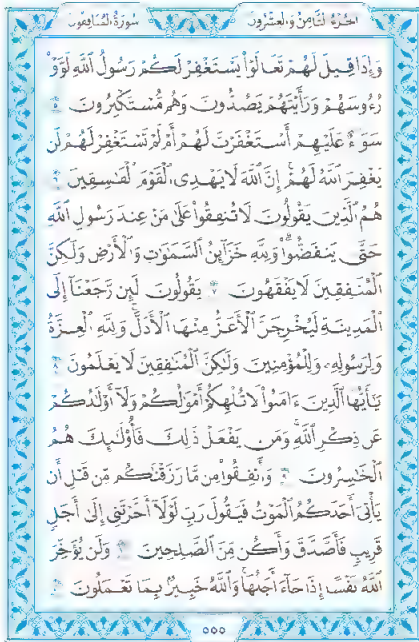 سُورَةُ المُنَافِقُون الجُزءُ الثَّامِنُ وَالعِشْرُون
وَإِذَا قِيلَ لَهُمْ تَعَالَوْاْ يَسْتَغْفِرْ لَكُمْ رَسُولُ ٱللَّهِ لَوَّوْاْ
رُءُوسَهُمْ وَرَأَيْتَهُمْ يَصُدُّونَ وَهُم مُّسْتَكْبِرُونَ ٥
سَوَآءٌ عَلَيْهِمْ أَسْتَغْفَرْتَ لَهُمْ أَمْ لَمْ تَسْتَغْفِرْ لَهُمْ لَن
يَغْفِرَ ٱللَّهُ لَهُمْ إِنَّ ٱللَّهَ لَا يَهْدِى ٱلْقَوْمَ ٱلْفَٰسِقِينَ ٦
هُمُ ٱلَّذِينَ يَقُولُونَ لَا تُنفِقُواْ عَلَىٰ مَنْ عِندَ رَسُولِ ٱللَّهِ
حَتَّىٰ يَنفَضُّواْ وَلِلَّهِ خَزَآئِنُ ٱلسَّمَٰوَٰتِ وَٱلْأَرْضِ وَلَٰكِنَّ
ٱلْمُنَٰفِقِينَ لَا يَفْقَهُونَ ٧ يَقُولُونَ لَئِن رَّجَعْنَآ إِلَى
ٱلْمَدِينَةِ لَيُخْرِجَنَّ ٱلْأَعَزُّ مِنْهَا ٱلْأَذَلَّ وَلِلَّهِ ٱلْعِزَّةُ
وَلِرَسُولِهِۦ وَلِلْمُؤْمِنِينَ وَلَٰكِنَّ ٱلْمُنَٰفِقِينَ لَا يَعْلَمُونَ ٨
يَٰٓأَيُّهَا ٱلَّذِينَ ءَامَنُواْ لَا تُلْهِكُمْ أَمْوَٰلُكُمْ وَلَآ أَوْلَٰدُكُمْ
عَن ذِكْرِ ٱللَّهِ وَمَن يَفْعَلْ ذَٰلِكَ فَأُوْلَٰٓئِكَ هُمُ
ٱلْخَٰسِرُونَ ٩ وَأَنفِقُواْ مِن مَّا رَزَقْنَٰكُم مِّن قَبْلِ أَن
يَأْتِىَ أَحَدَكُمُ ٱلْمَوْتُ فَيَقُولَ رَبِّ لَوْلَآ أَخَّرْتَنِىٓ إِلَىٰٓ أَجَلٍ
قَرِيبٍ فَأَصَّدَّقَ وَأَكُن مِّنَ ٱلصَّٰلِحِينَ ١٠ وَلَن يُؤَخِّرَ
ٱللَّهُ نَفْسًا إِذَا جَآءَ أَجَلُهَا وَٱللَّهُ خَبِيرٌۢ بِمَا تَعْمَلُونَ ١١
٥٥٥